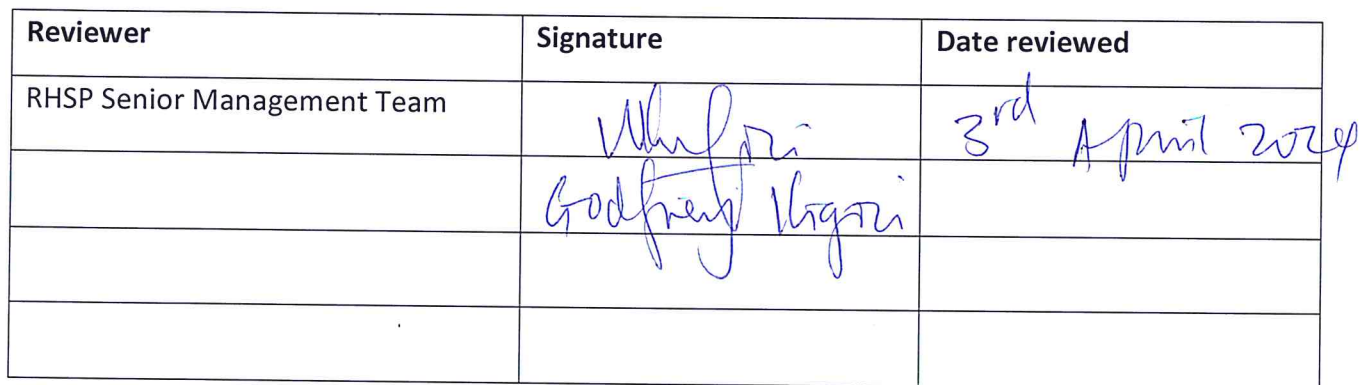 Reviewer Signature Date reviewed
RHSP Senior Management Team 3rd April 2024
Godfrey Kigozi